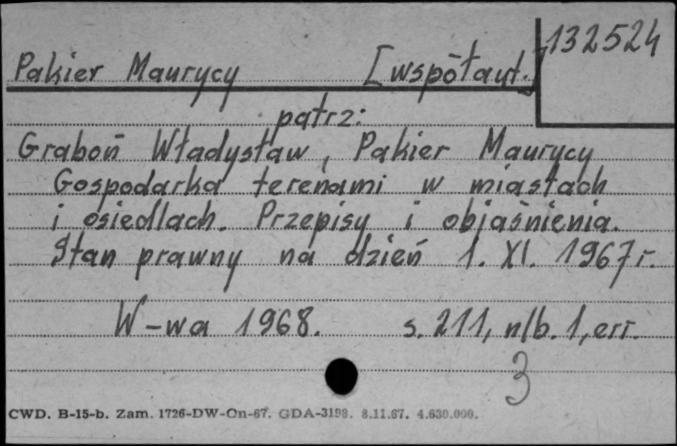 132524
Pakier Maurycy [współaut.]
patrz:
Graboń Władysław, Pakier Maurycy
Gospodarka terenami w miastach
i osiedlach. Przepisy i objaśnienia.
Stan prawny na dzień 1. XI. 1967 r.
W-wa 1968. s. 211, nlb. 1, err.
3
CWD. B-15-b. Zam. 1726-DW-On-67. GDA-3198. 8.11.67. 4.630.000.